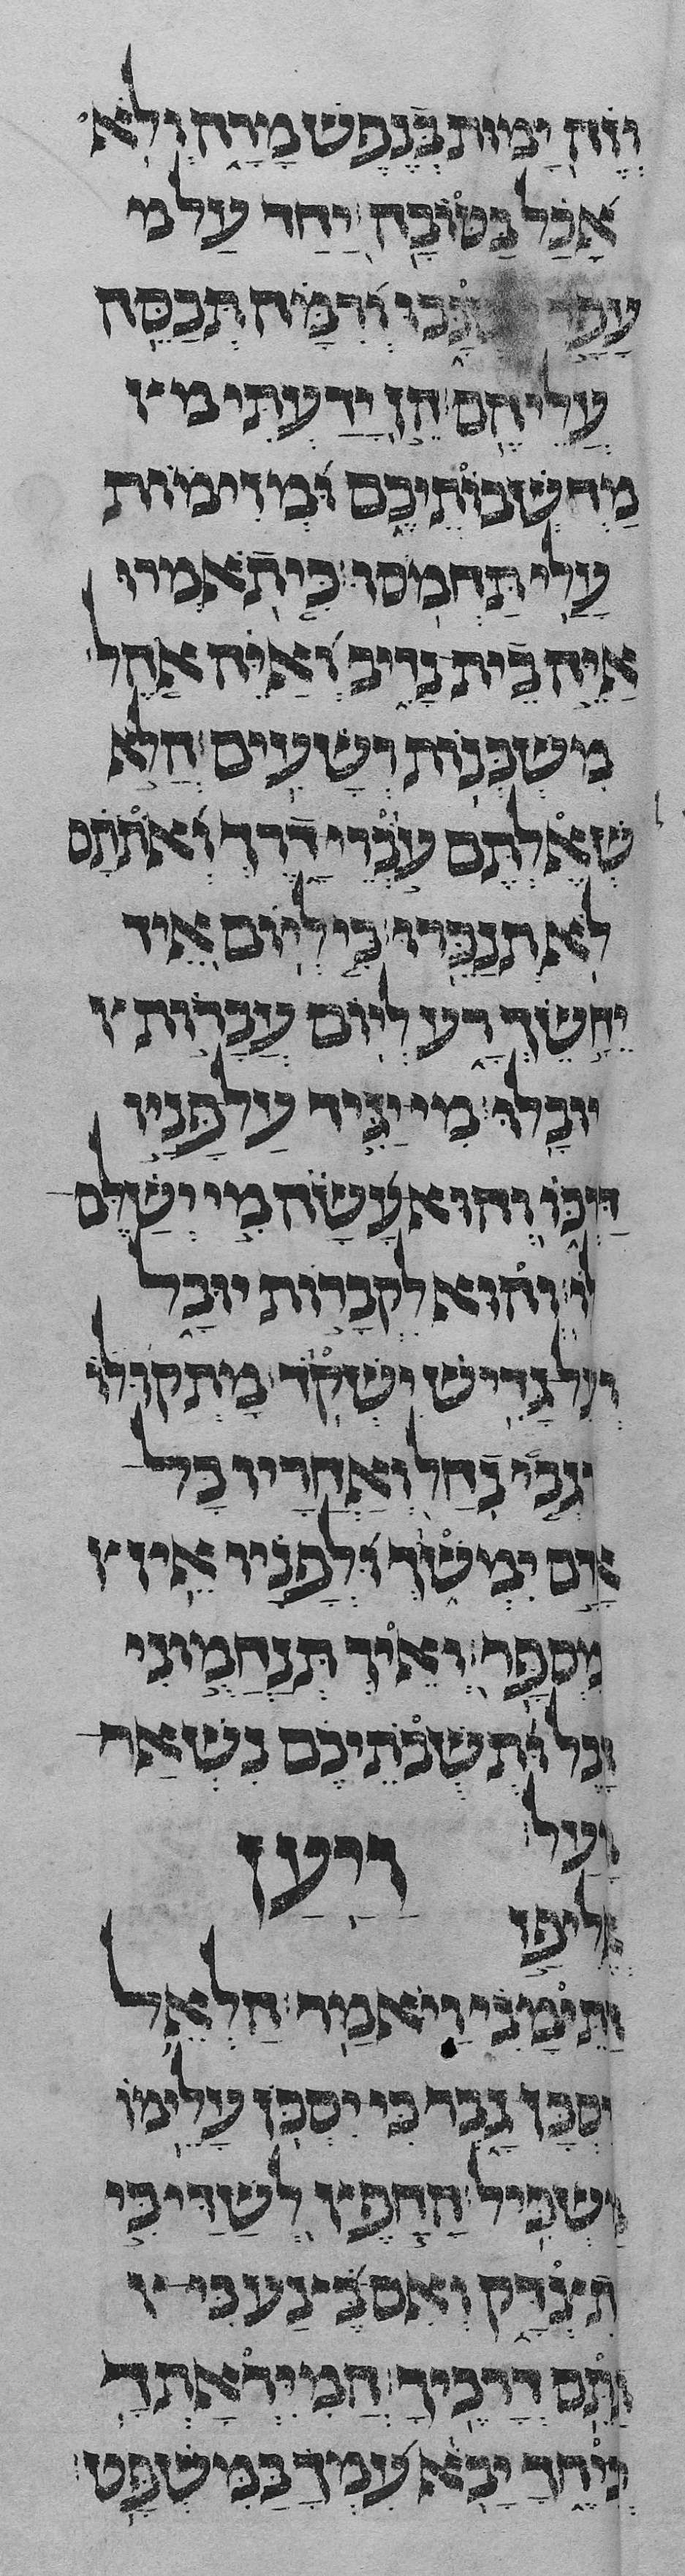 וזה ימות בנפש מרה ולא
אכל בטובה יחד על מ
עפר ישכבו ורמה תכסה
עליהם הן ידעתי מ
מחשבותיכם ומזימות
עלי תחמסו כי תאמרו
איה בית נדיב ואיה אהל
משכנות רשעים הלא
שאלתם עברי דרך ואתתם
לא תנכרו כי ליום איד
יחשך רע ליום עברות
יובלו מי יגיד על פניו
דרכו והוא עשה מי ישלם
לו והוא לקברות יובל
ועל גדיש ישקד מתקו לו
רגבי נחל ואחריו כל
אדם ימשך ולפניו אין
מספר ואיך תנחמוני
הבל ותשבתיכם נשאר
מעל ויען
אליפז
התימני ויאמר הלאל
יסכן גבר כי יסכן עלימו
משכיל החפץ לשדי כי
תצדק ואם בצע כי
תתם דרכיך המיראתך
יכיחך יבא עמך במשפט